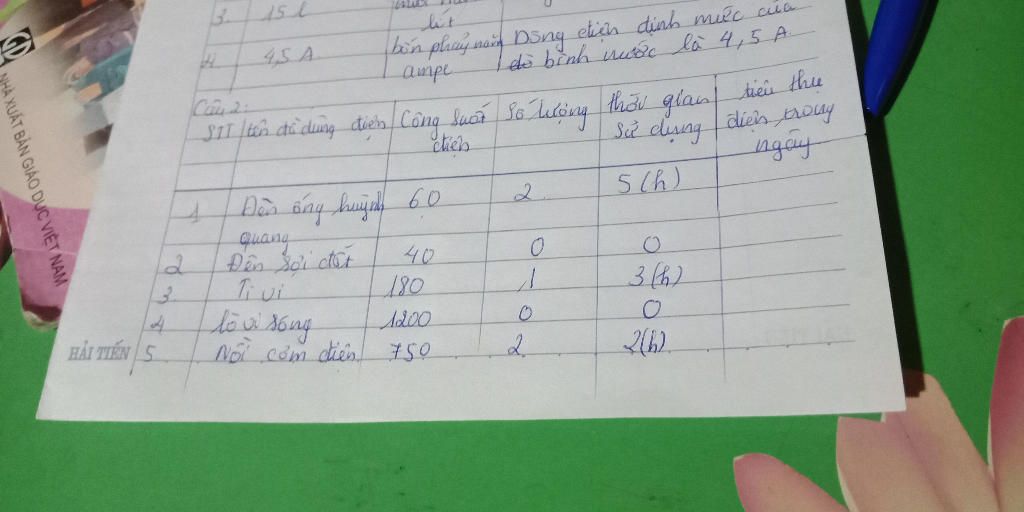 3. 15 l lít
4 4,5 A bốn phảy năm Dòng điện định mức của
ampe đồ bình nước là 4,5 A
Câu 2:
STT tên đồ dùng điện Công suất Số lượng thời gian tiêu thụ
điện sử dụng điện trong
ngày
1 Đèn ống huỳnh 60 2 5 (h)
quang
2 Đèn sợi đốt 40 0 0
3 Ti vi 180 1 3 (h)
4 lò vi sóng 1200 0 0
5. Nồi cơm điện 750 2 2(h)
HẢI TIẾN
NHÀ XUẤT BẢN GIÁO DỤC VIỆT NAM